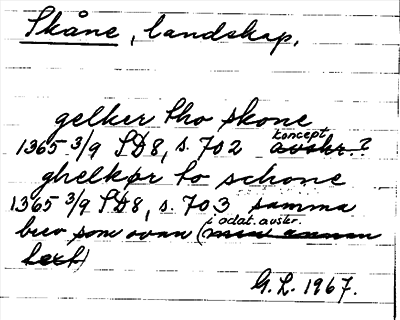 Skåne, landskap.
gelker tho skone
koncept
1365 3/9 SD8, s. 702 avskr.?
ghelkør to schone
1365 3/9 SD8, s. 703 samma
i odat. avskr.
brev som ovan (med annan
text)
G. L. 1967.